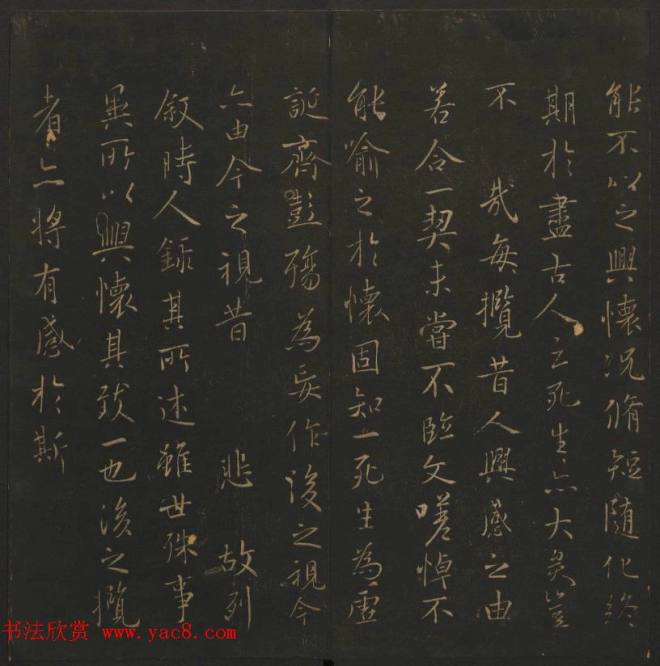 能不以之興懷況脩短隨化終
期於盡古人云死生亦大矣豈
不 哉每攬昔人興感之由
若合一契未嘗不臨文嗟悼不
能喻之於懷固知一死生為虛
誕齊彭殤為妄作後之視今
亦由今之視昔 悲 故列
敘時人錄其所述雖世殊事
異所以興懷其致一也後之攬
者亦將有感於斯
书法欣赏 www.yac8.com